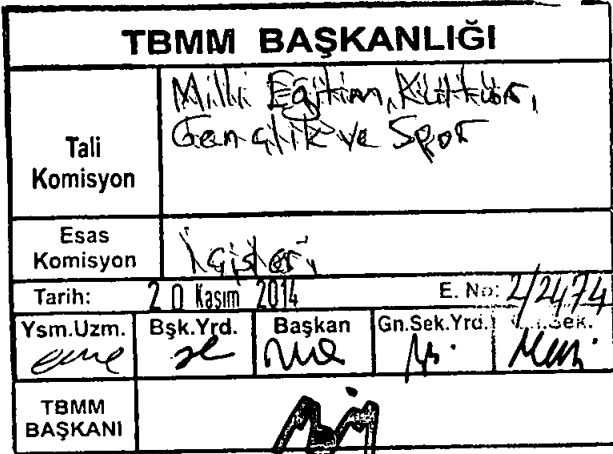 TBMM BAŞKANLIĞI
Tali
Komisyon
Milli Eğitim, Kültür,
Gençlik ve Spor
Esas
Komisyon
İçişleri
Tarih: 20 Kasım 2014 E. No: 2/2474
Ysm.Uzm. Bşk.Yrd. Başkan Gn.Sek.Yrd. Sek.
TBMM
BAŞKANI